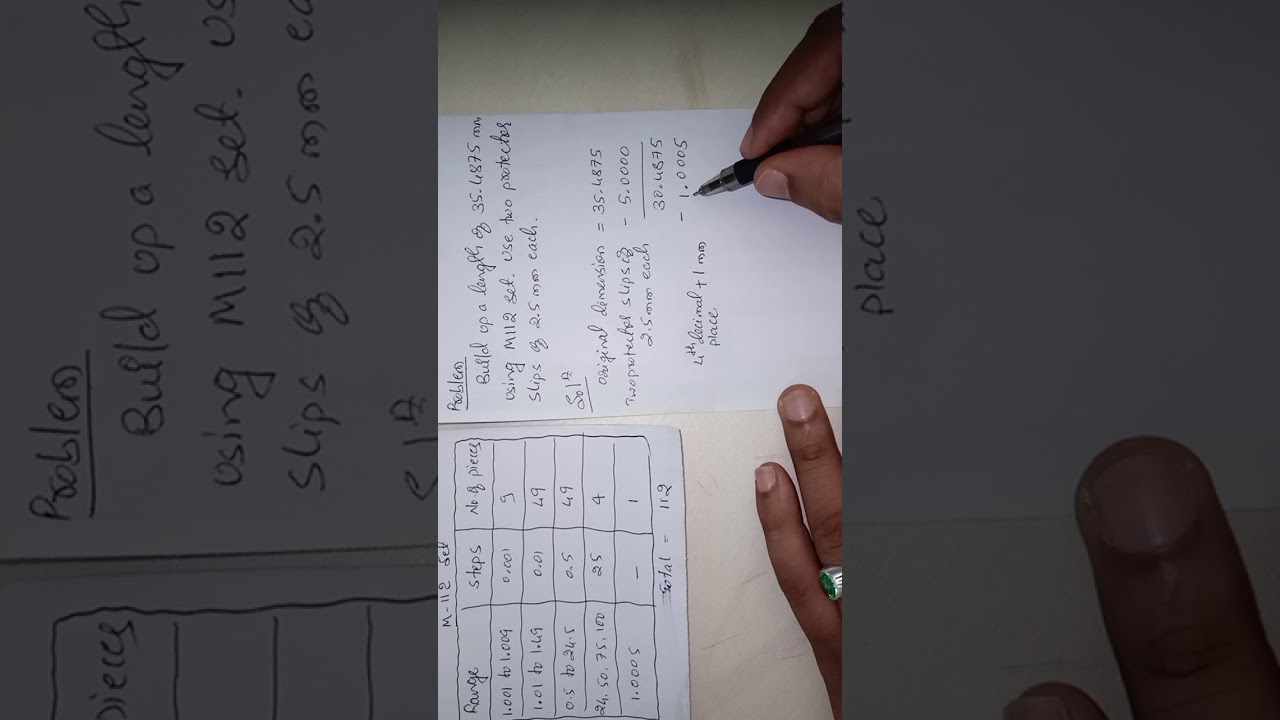 Problem
Build up a length of 35.4875 mm
using M112 set. Use two protector
slips of 2.5 mm each.
Solⁿ
Original dimension = 35.4875
Two protector slips of - 5.0000
2.5 mm each
30.4875
4th decimal + 1 mm - 1.0005
place
M-112 Set
Range Steps No. of pieces
1.001 to 1.009 0.001 9
1.01 to 1.49 0.01 49
0.5 to 24.5 0.5 49
24, 50, 75, 100 25 4
1.0005 - 1
Total = 112
Problem
Build up a length
using M112 set. Us
slips of 2.5 mm ea
pieces
place